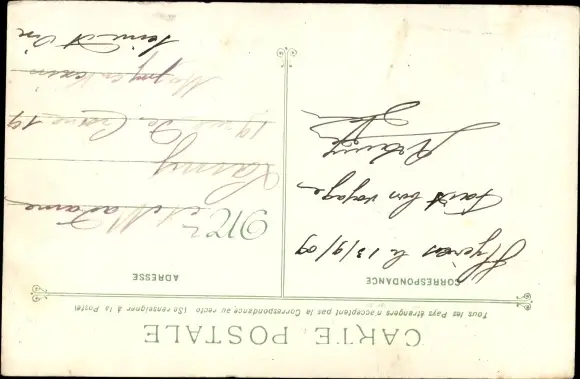 CARTE POSTALE
Tous les Pays étrangers n'acceptent pas la Correspondance au recto (Se renseigner à la Poste)
CORRESPONDANCE
Hyères le 13/9/09
Fait bon voyage
ADRESSE
Mr et Madame
Lamy
19 rue de 19
Seine et Oise